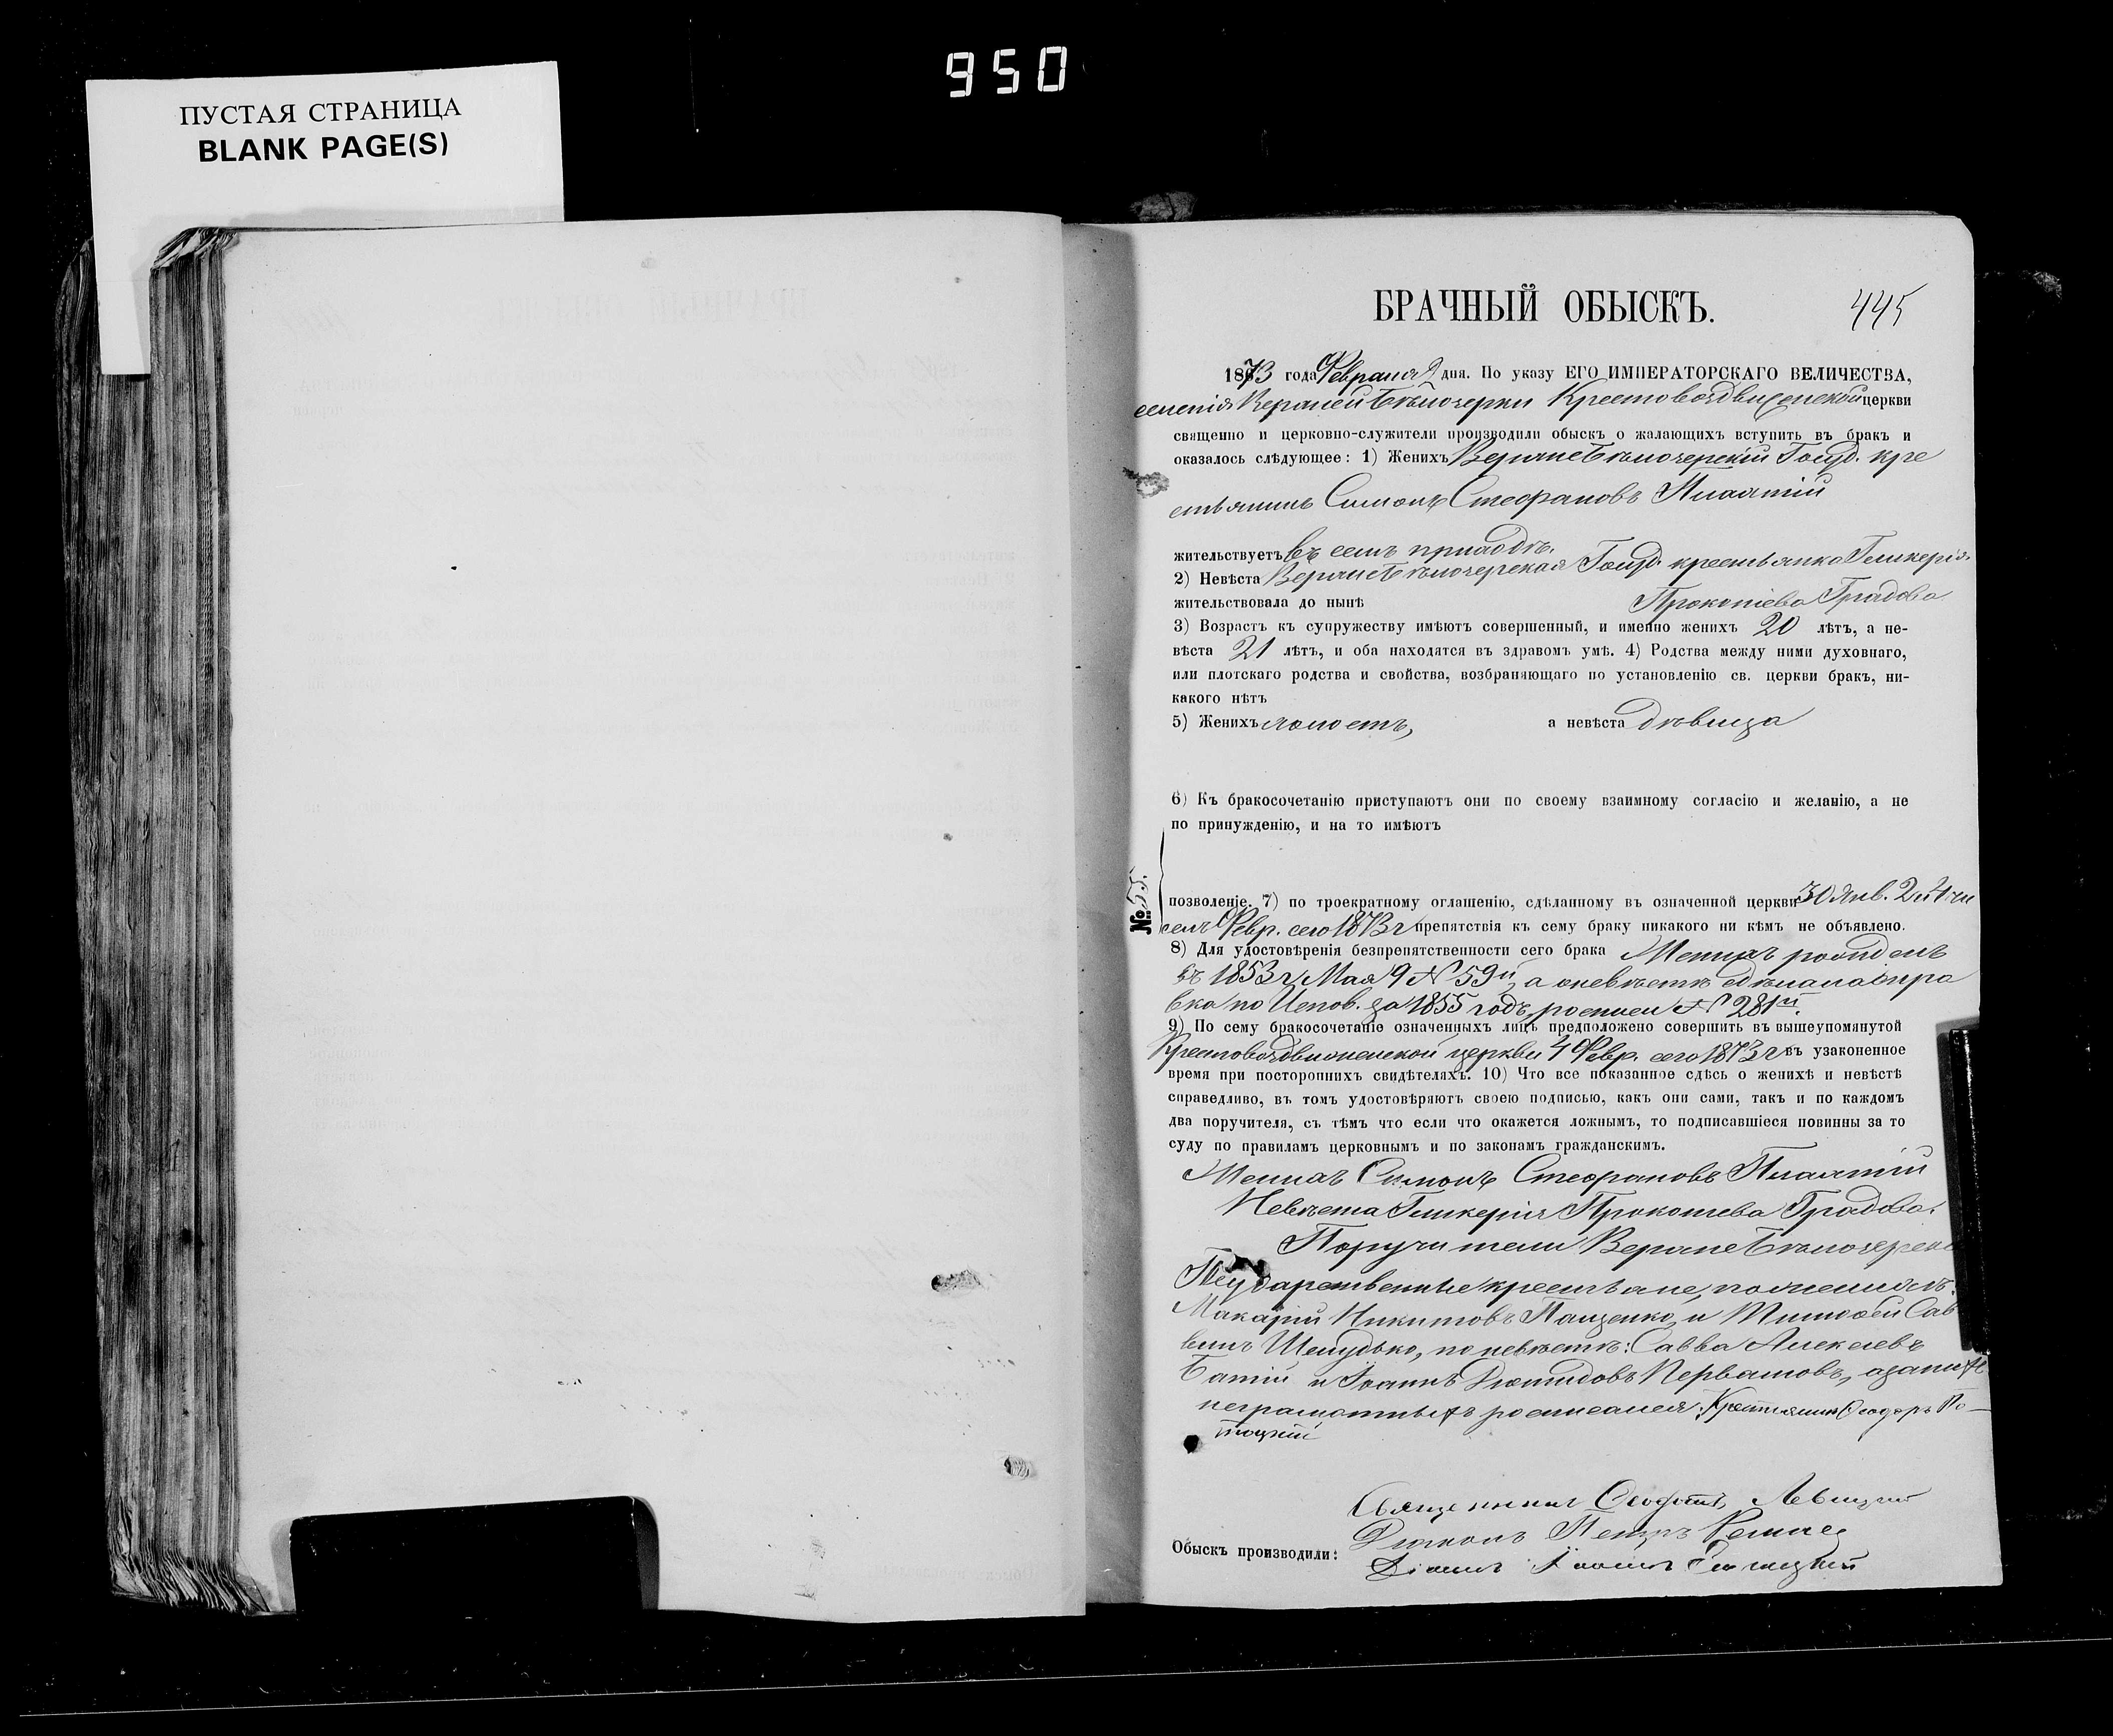 950
ПУСТАЯ СТРАНИЦА
BLANK PAGE(S)
БРАЧНЫЙ ОБЫСКЪ.
445
1873 года Февраля 2 дня. По указу ЕГО ИМПЕРАТОРСКАГО ВЕЛИЧЕСТВА,
селенія Верхней Бѣлозерки Крестовоздвиженской церкви
священно и церковно-служители производили обыскъ о жалающихъ вступить въ бракъ и
оказалось слѣдующее: 1) Женихъ Верхне Бѣлозерскій Госуд. кре
стьянинъ Симонъ Стефановъ
жительствуетъ въ семъ приходѣ.
2) Невѣста Верхне Бѣлозерская Госуд. крестьянка Гликерія
жительствовала до нынѣ Прокопіева Градова
3) Возрастъ къ супружеству имѣютъ совершенный, и именно женихъ 20 лѣтъ, а не-
вѣста 21 лѣтъ, и оба находятся въ здравомъ умѣ. 4) Родства между ними духовнаго,
или плотскаго родства и свойства, возбраняющаго по установленію св. церкви бракъ, ни-
какого нѣтъ
5) Женихъ холостъ, а невѣста дѣвица
6) Къ бракосочетанію приступаютъ они по своему взаимному согласію и желанію, а не
по принужденію, и на то имѣютъ
№ 55.
позволеніе. 7) по троекратному оглашенію, сдѣланному въ означенной церкви 30 Янв. 2 и 4 чи
селъ Февр. сего 1873 г препятствія къ сему браку никакого ни кѣмъ не объявлено.
8) Для удостовѣренія безпрепятственности сего брака Женихъ рожденъ
въ 1853 г. Мая 9 № 59й, а о невѣстѣ сдѣлана спра
вка по Испов. за 1855 годъ, росписи № 281й.
9) По сему бракосочетаніе означенныхъ лицъ предположено совершить въ вышеупомянутой
Крестовоздвиженской церкви 4 Февр. сего 1873 г въ узаконенное
время при постороннихъ свидѣтеляхъ. 10) Что все показанное сдѣсь о женихѣ и невѣстѣ
справедливо, въ томъ удостовѣряютъ своею подписью, какъ они сами, такъ и по каждомъ
два поручителя, съ тѣмъ что если что окажется ложнымъ, то подписавшіеся повинны за то
суду по правиламъ церковнымъ и по законамъ гражданскимъ.
Женихъ Симонъ Стефановъ
Невѣста Гликерія Прокопіева Градова.
Поручители Верхне Бѣлозерскіе
Государственные крестьяне, по женихѣ:
Макарій Никитовъ Пащенко, и Тимофей Сав
винъ Шелудько, по невѣстѣ: Савва Алексѣевъ
и Іоаннъ Діомидовъ, а за нихъ
неграмотныхъ росписался: Крестьянинъ Феодоръ По-
тоцкій
Священникъ Левицкій
Обыскъ производили: Діаконъ Петръ
Іоаннъ